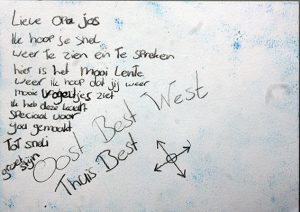 Lieve opa jos
Ik hoop je snel
weer te zien en te spreken
hier is het mooi Lente
weer Ik hoop dat jij weer
mooie vogeltjes ziet
Ik heb deze kaart
speciaal voor
jou gemaakt
Tot snel
groetjes
Oost Best West
Thuis Best